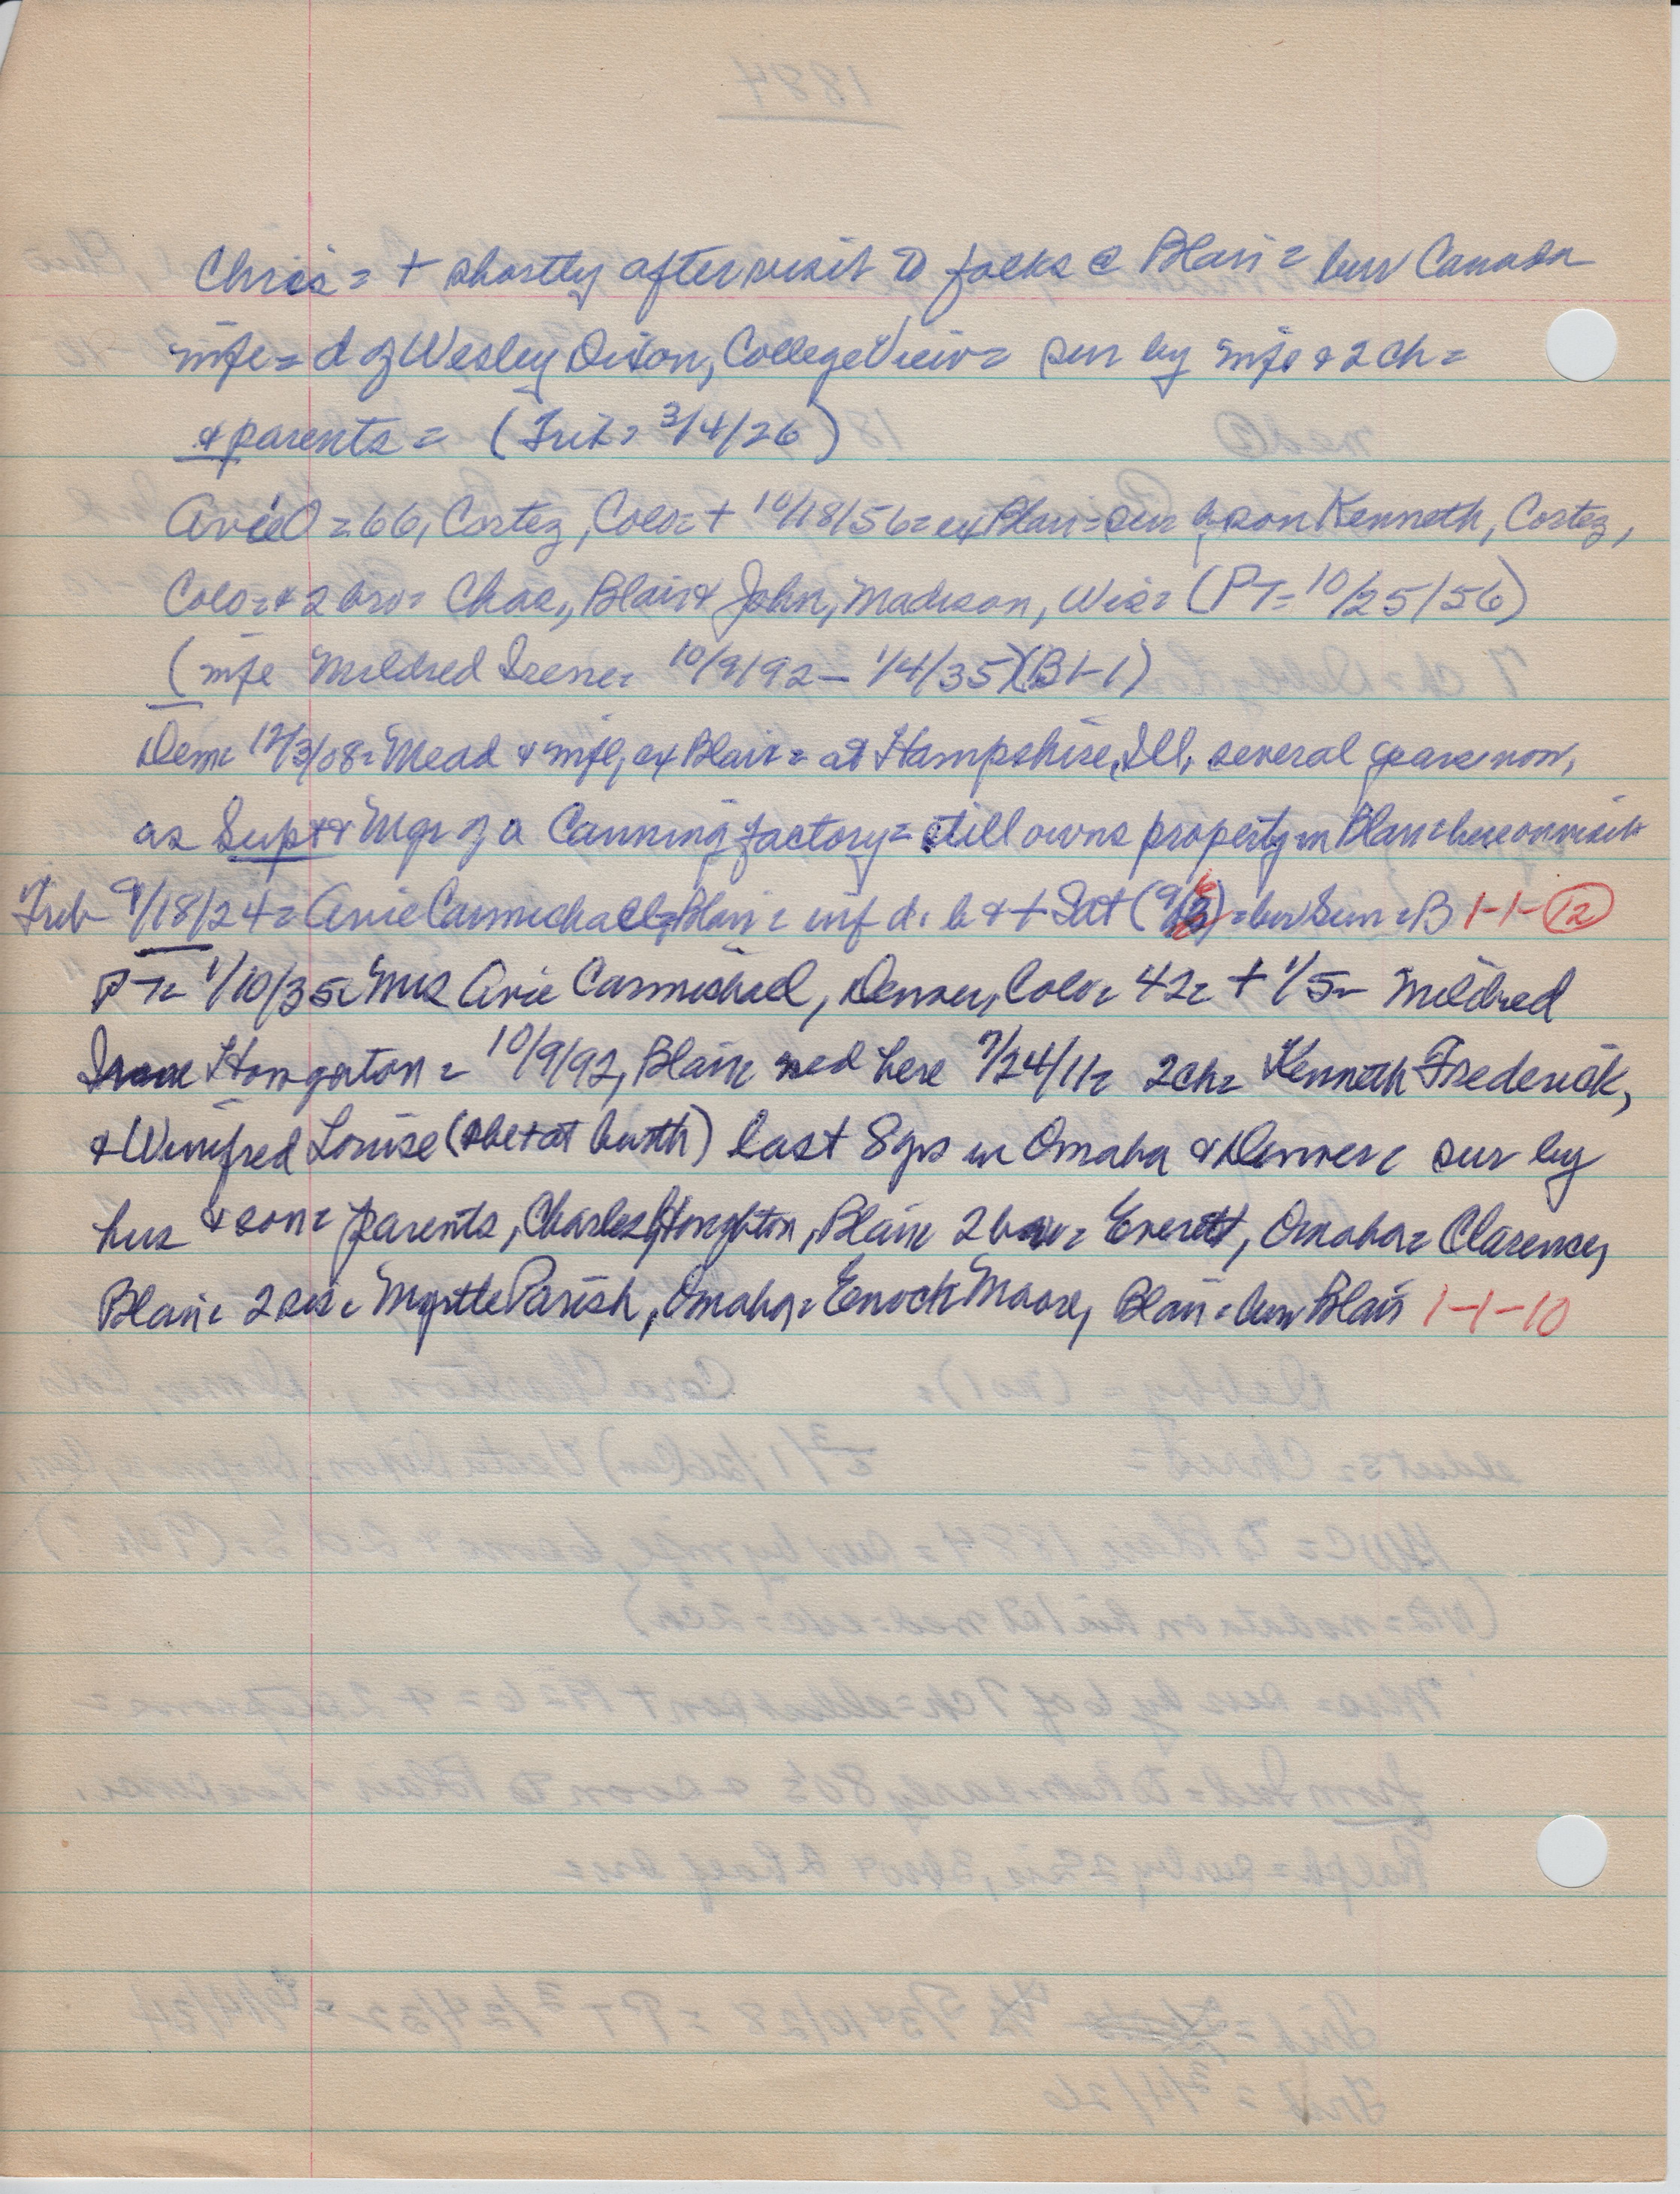 Chris = + shortly after visit to folks @ Blair = bur Canada
wife = d of Wesley Dixon, College View = sur by wife & 2 ch =
& parents = (Trib = 3/4/26)
Avie = 66, Cortez, Colo = + 10/18/56 = ex Blair = sur by son Kenneth, Cortez,
Colo = & 2 bro = Chas, Blair & John, Madison, Wis = (PT = 10/25/56)
(wife Mildred Irene = 10/9/92 — 1/4/35)(B 1-1)
Dem = 12/3/08 = Mead & wife, ex Blair = at Hampshire, Ill, several years now,
as Supt & Mgr of a Canning factory = still owns property in Blair = here on visit
Trib 9/18/24 = Avie Carmichael = Blair = inf d = b & + Sat = bur Sun = B 1-1-12
PT = 1/10/35 = Mrs Avie Carmichael, Denver, Colo = 42 = + 1/5 = Mildred
Irene Houghton = 10/9/92, Blair = med here 7/24/11 = 2 ch = Kenneth Frederick,
& Winifred Louise (she + at birth) last 8 yrs in Omaha & Denver = sur by
hus & son = parents, Charles Houghton, Blair = 2 bro = Everett, Omaha = Clarence,
Blair = 2 sis = Myrtle Parish, Omaha = Enoch Moore, Blair = bur Blair 1-1-10